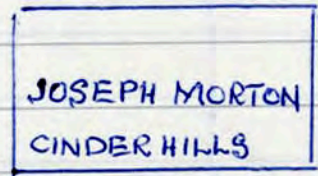 JOSEPH MORTON
CINDER HILLS